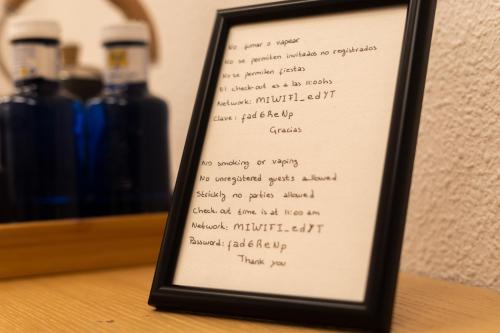 No fumar o vapear
No se permiten invitados no registrados
No se permiten fiestas
El check-out es a las 11:00hs
Network: MIWIFI_edYT
Clave: fad6ReNp
Gracias
No smoking or vaping
No unregistered guests allowed
Strickly no parties allowed
Check out time is at 11:00 am
Network: MIWIFI_edYT
Password: fad6ReNp
Thank you